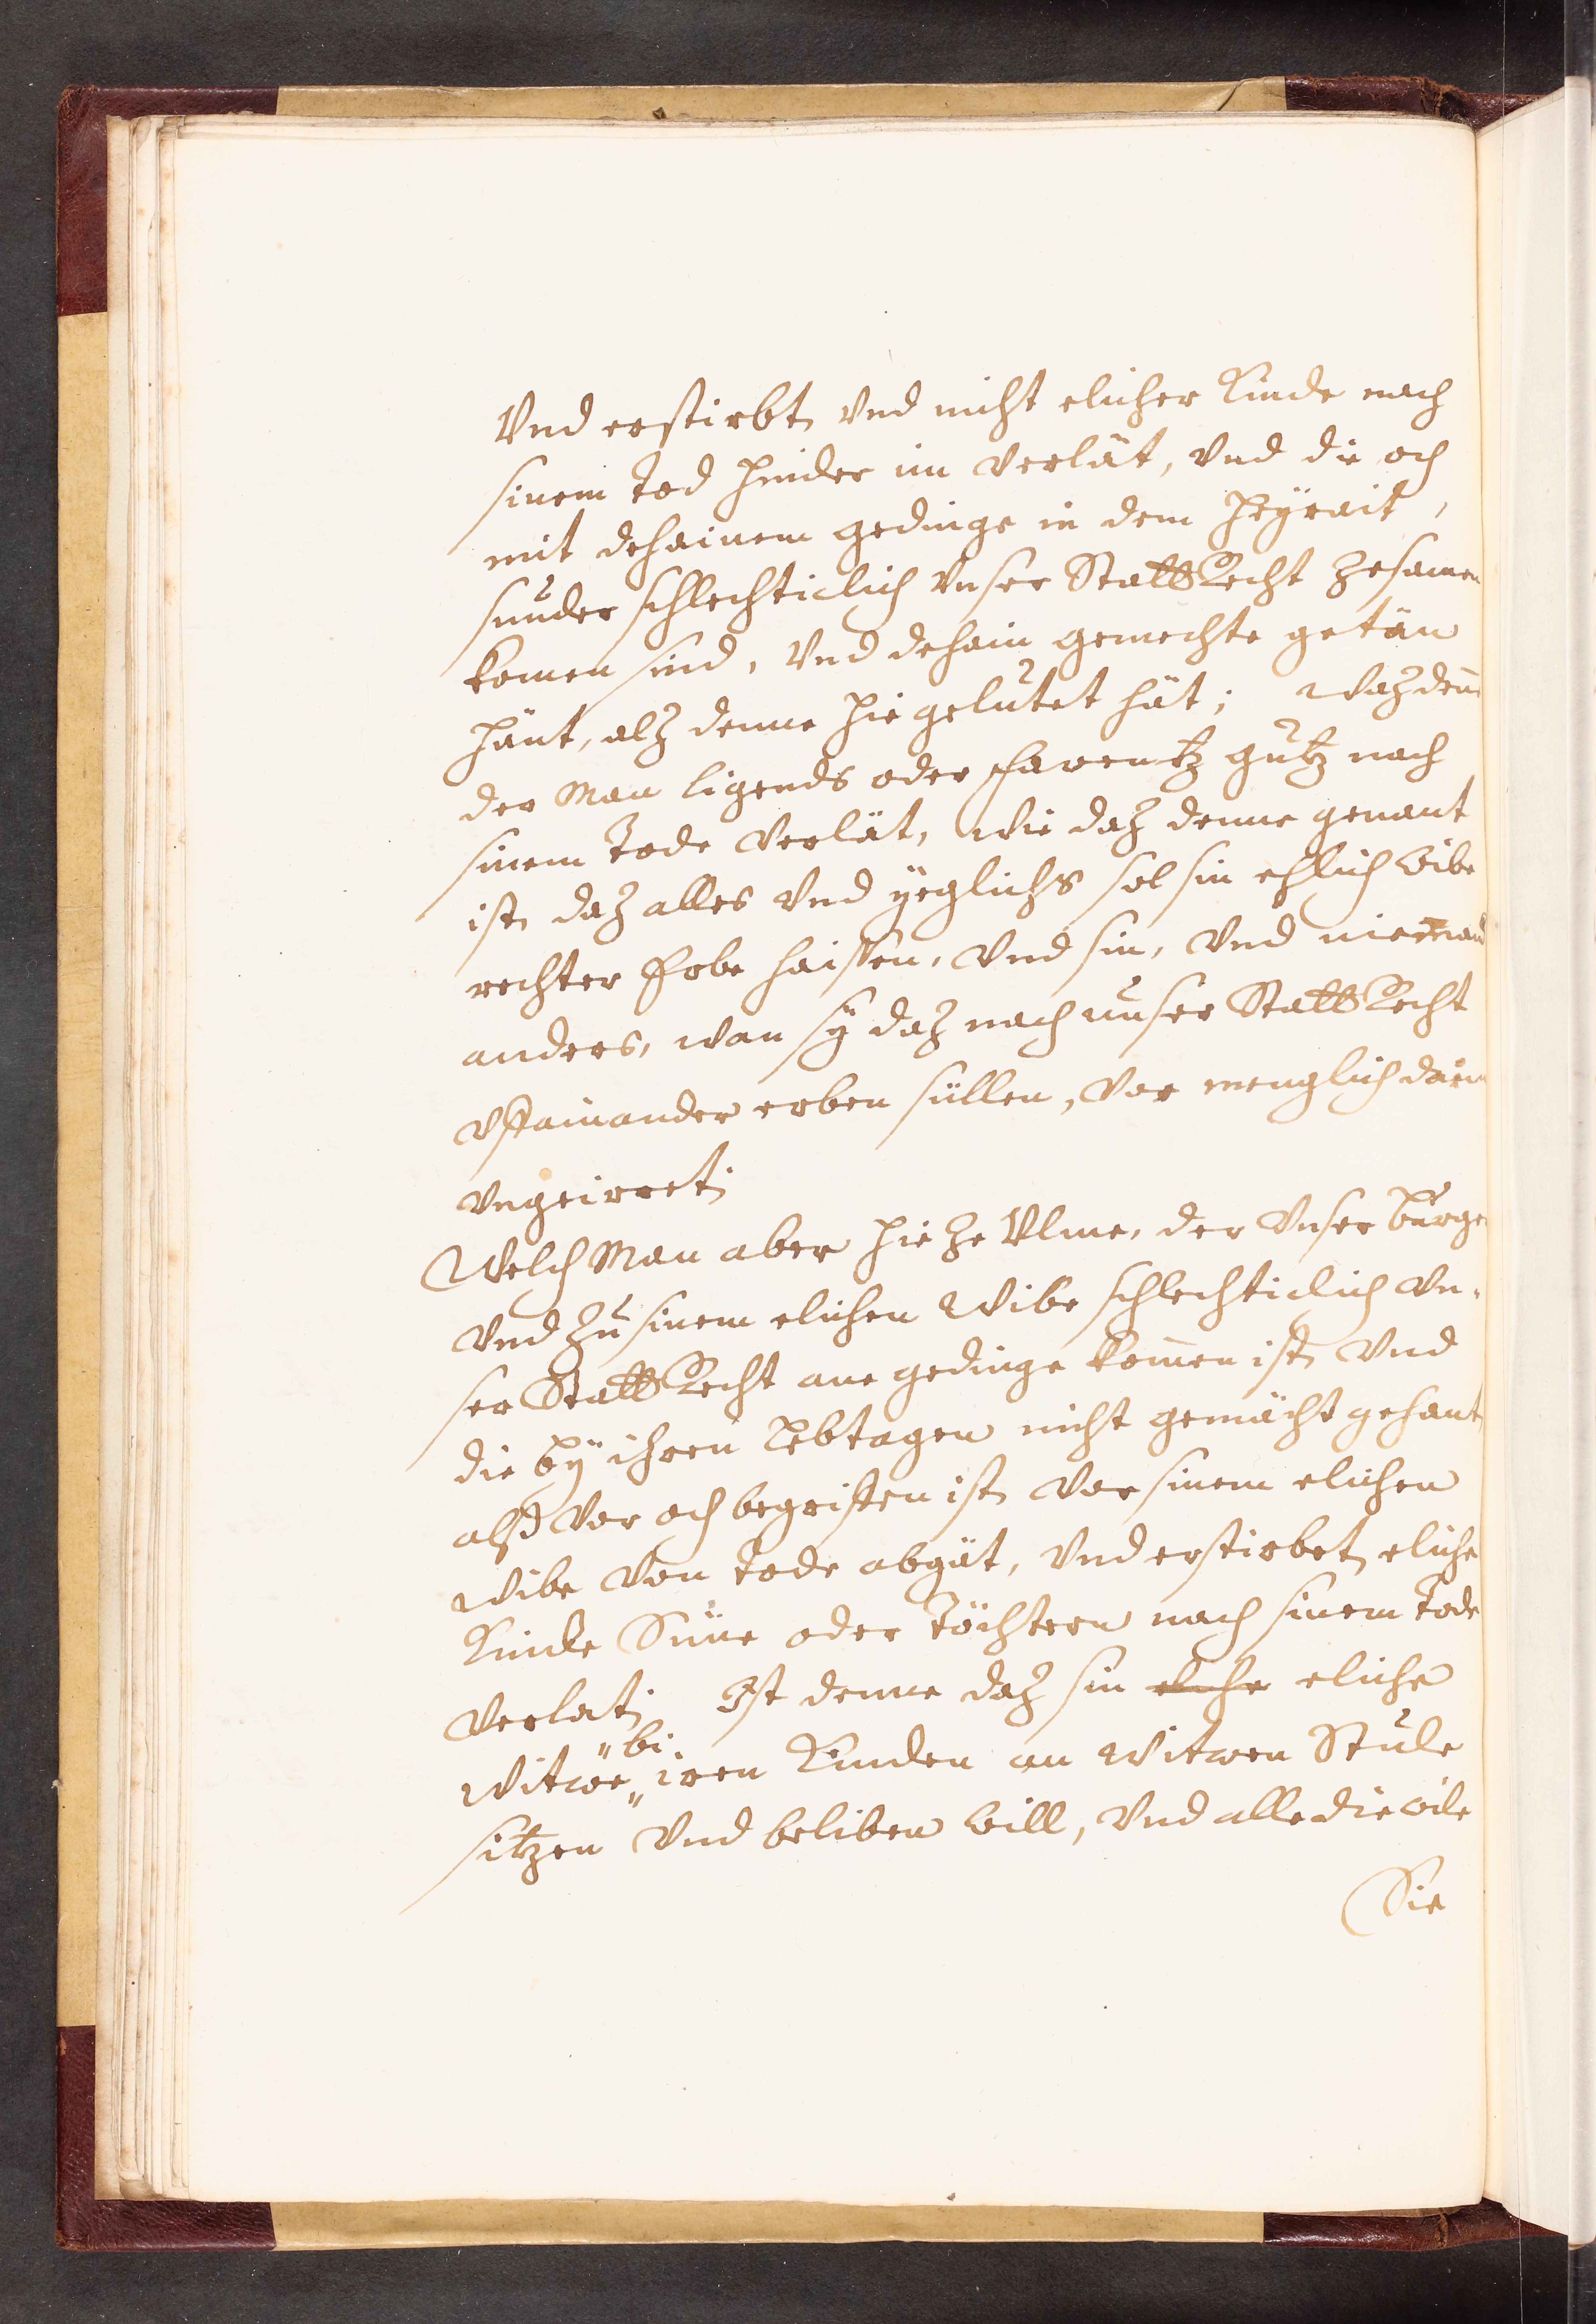 Vnd erstirbt, vnd nicht elicher Kinde nach
sinem Tod hinder im verlät, vnd die och
mit dehainem gedinge in dem Heyrait,
sunder schlechticlich vnser Statt Recht zesamen
komen sind, vnd dehain gemechte getän
hänt, alz denne hie gelutet hät; Waz denn
der Man ligends oder farentz gutz nach
sinem Tode verlät, wie daz denne genant
ist, daz alles vnd yeglichs sol sin ehlich wibe
rechter Erbe haissen, vnd sin, vnd nieman
anders, wan sÿ daz nach unser Statt Recht
vffainander erben süllen, vor menglich darin
vngeirret.
Welch Man aber hie ze Vlme, der vnser burger
vnd zu sinem elichen Wibe schlechticlich vn-
ser Statt Recht ane gedinge komen ist, vnd
die bÿ ihren Lebtagen nicht gemächt gehant
alß vor och begriffen ist, vor sinem elichen
Wibe von Tode abgät, vnd erstirbet, eliche
Kinde Süne oder Töchtern nach sinem Tode
verlat. Ist denne daz sin eliche eliche
bi
Witwe iren Kinden an Witwen Stule
sitzen vnd beliben will, vnd alle die wile
Sie